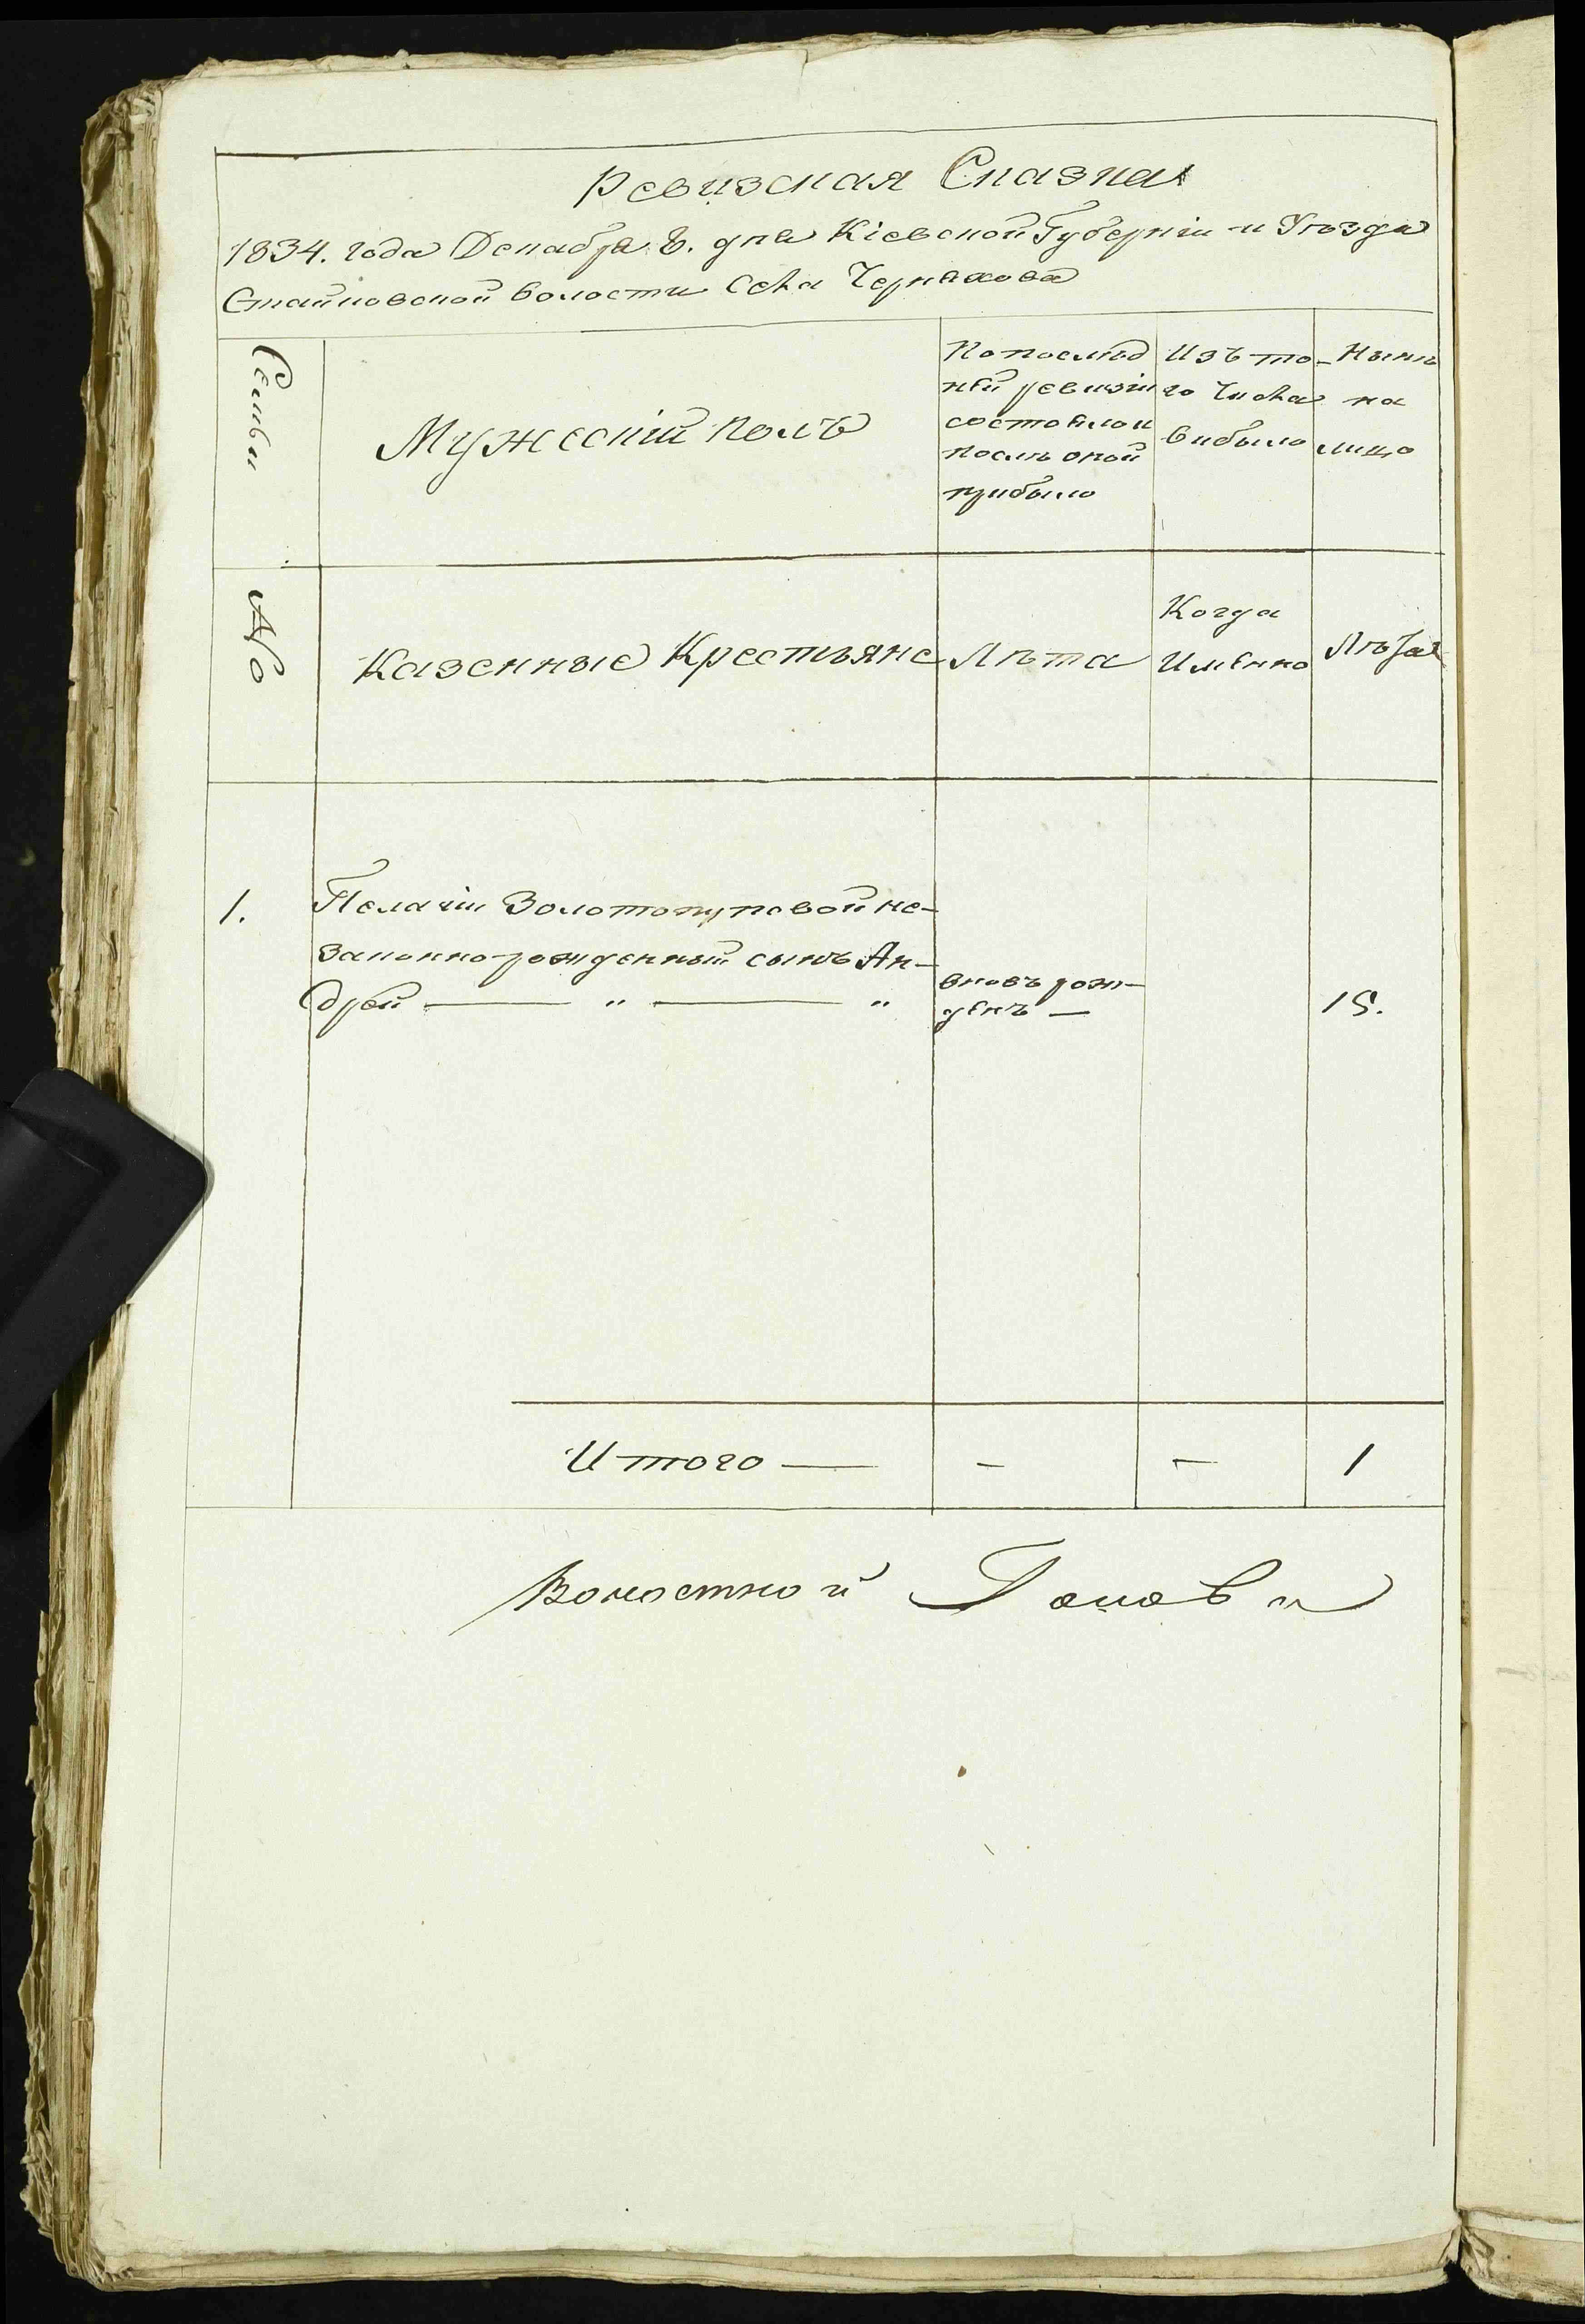 Ревизская Сказка
1834. года Декабря дня Кіевской Губерніи и Уѣзда
Стайковской волости Села Черняхова
Семьи
Мужескій полъ
По послѣд
ней ревизіи
состояло и
послѣ оной
прибыло
Изъ то-
го числа
выбыло
Нынѣ
на
лицо
№
Казенные Крестьяне
Лѣта
Когда
Именно
Лѣта
1.
Пелагіи Золотопуповой не-
законно-рожденный сынъ Ан-
дрей — " — "
вновь рож-
денъ —
15.
Итого —
-
-
1
Волостной Голова